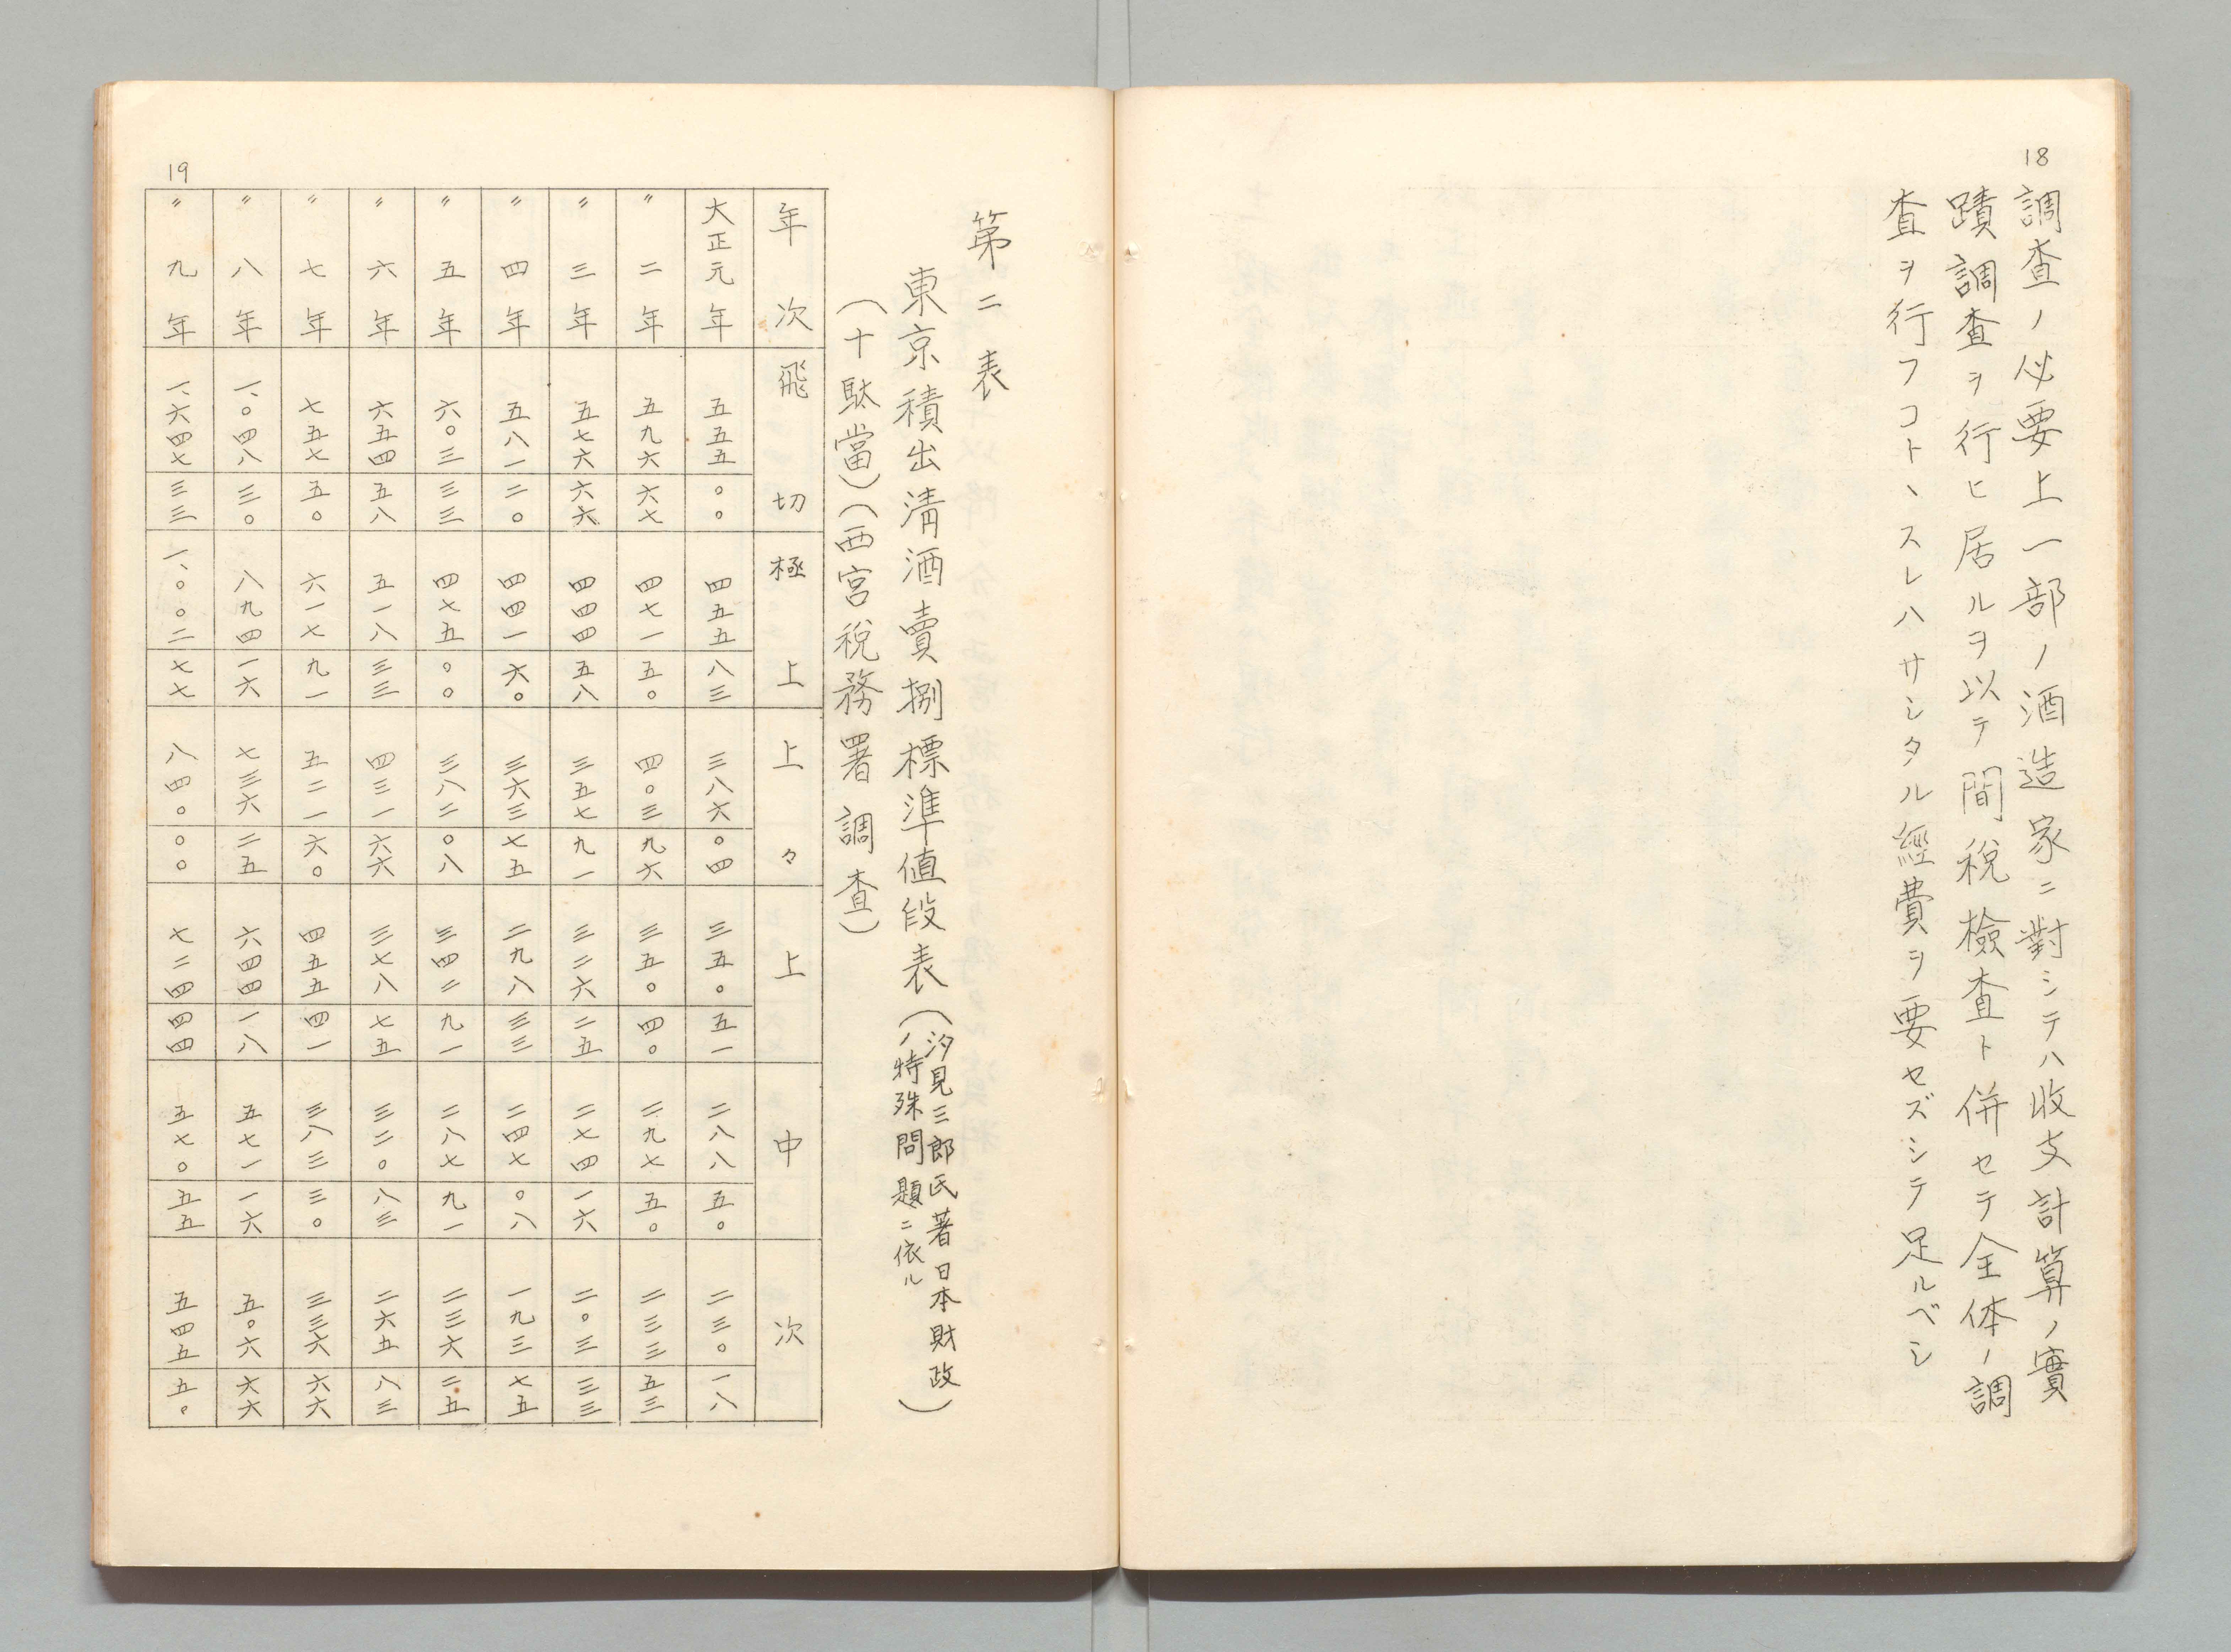 18
調査ノ必要上一部ノ酒造家ニ對シテハ收支計算ノ實
蹟調査ヲ行ヒ居ルヲ以テ間税檢査ト併セテ全体ノ調
査ヲ行フコトヽスレハサシタル經費ヲ要セズシテ足ルベシ
第二表
東京積出淸酒賣捌標準値段表(汐見三郎氏著日本財政
ノ特殊問題ニ依ル)
(十駄當)(西宮税務署調査)
年次 飛切 極上 上々 上 中 次
大正元年 五五五 〇〇 四五五 八三 三八六 〇四 三五〇 五一 二八八 五〇 二三〇 一八
〃二年 五九六 六七 四七一 五〇 四〇三 九六 三五〇 四〇 二九七 五〇 二三三 五三
〃三年 五七六 六六 四四四 五八 三五七 九一 三二六 二五 二七四 一六 二〇三 三三
〃四年 五八一 二〇 四四一 六〇 三六三 七五 二九八 三三 二四七 〇八 一九三 七五
〃五年 六〇三 三三 四七五 〇〇 三八二 〇八 三四二 九一 二八七 九一 二三六 二五
〃六年 六五四 五八 五一八 三三 四三一 六六 三七八 七五 三二〇 八三 二六五 八三
〃七年 七五七 五〇 六一七 九一 五二一 六〇 四五五 四一 三八三 三〇 三三六 六六
〃八年 一、〇四八 三〇 八九四 一六 七三六 二五 六四四 一八 五七一 一六 五〇六 六六
〃九年 一、六四七 三三 一、〇〇二 七七 八四〇 〇〇 七二四 四四 五七〇 五五 五四五 五〇
19